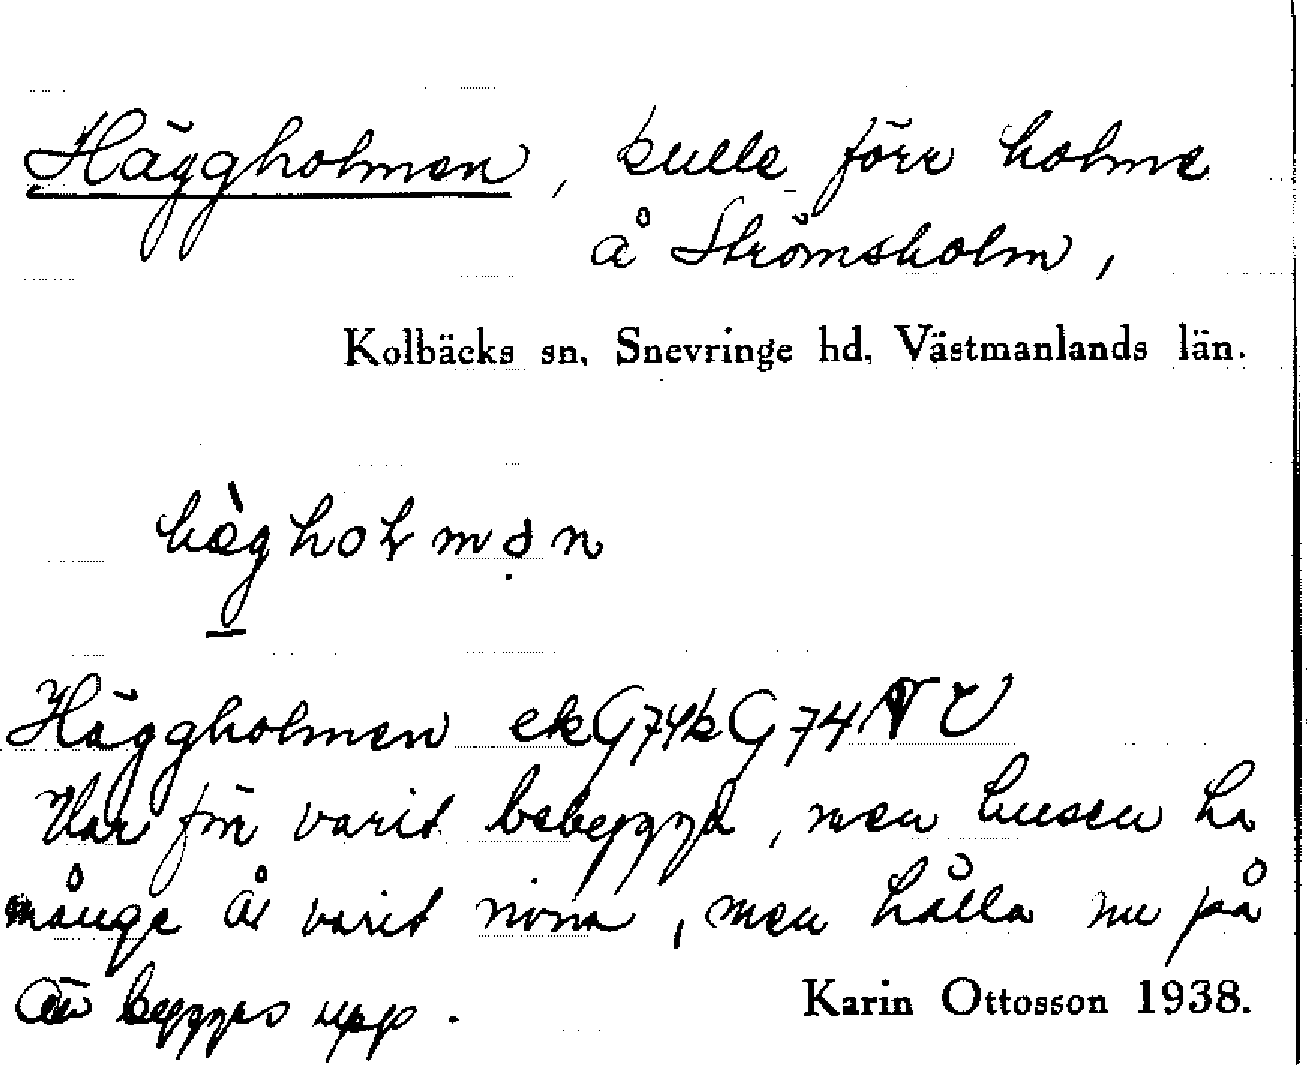 Häggholmen, kulle förr holme
å Strömsholm,
Kolbäcks sn, Snevringe hd, Västmanlands län.
hæ̀gholmən
Häggholmen ek G74k G74
Har förr varit bebyggd, men husen ha
många år varit rivna, men hålla nu på
att byggas upp.
Karin Ottosson 1938.